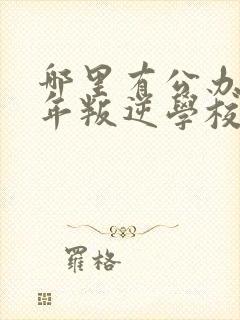 哪里有公办
年叛逆學校
羅格